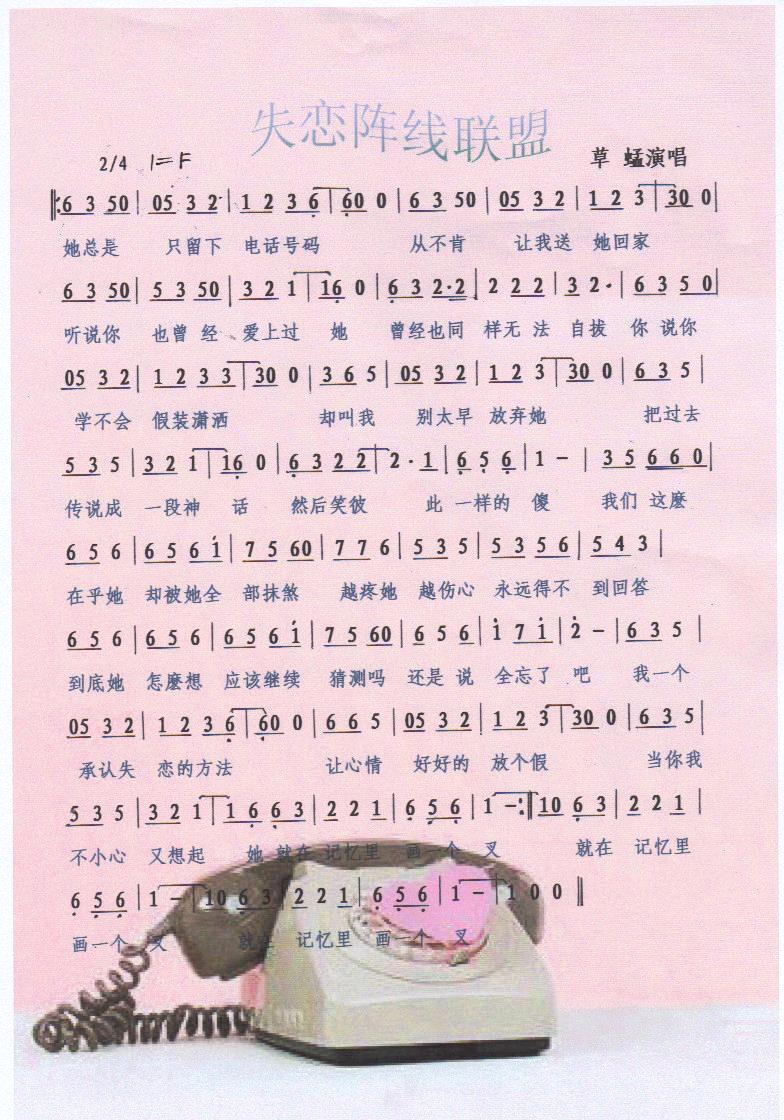 失恋阵线联盟
2/4 1=F 草 蜢演唱
‖:6 3 50 | 05 3 2 | 1 2 3 6 | 60 0 | 6 3 50 | 05 3 2 | 1 2 3 | 30 0 |
她总是 只留下 电话号码 从不肯 让我送 她回家
6 3 50 | 5 3 50 | 3 2 1 | 16 0 | 6 3 2·2 | 2 2 2 | 3 2· | 6 3 5 0 |
听说你 也曾 经 爱上过 她 曾经也同 样无 法 自拔 你 说你
05 3 2 | 1 2 3 3 | 30 0 | 3 6 5 | 05 3 2 | 1 2 3 | 30 0 | 6 3 5 |
学不会 假装潇洒 却叫我 别太早 放弃她 把过去
5 3 5 | 3 2 1 | 16 0 | 6 3 2 2 | 2 · 1 | 6 5 6 | 1 – | 3 5 6 6 0 |
传说成 一段神 话 然后笑彼 此 一样的 傻 我们 这麽
6 5 6 | 6 5 6 1 | 7 5 60 | 7 7 6 | 5 3 5 | 5 3 5 6 | 5 4 3 |
在乎她 却被她全 部抹煞 越疼她 越伤心 永远得不 到回答
6 5 6 | 6 5 6 | 6 5 6 1 | 7 5 60 | 6 5 6 | 1 7 1 | 2 – | 6 3 5 |
到底她 怎麽想 应该继续 猜测吗 还是 说 全忘了 吧 我一个
05 3 2 | 1 2 3 6 | 60 0 | 6 6 5 | 05 3 2 | 1 2 3 | 30 0 | 6 3 5 |
承认失 恋的方法 让心情 好好的 放个假 当你我
5 3 5 | 3 2 1 | 1 6 6 3 | 2 2 1 | 6 5 6 | 1 –:‖ 10 6 3 | 2 2 1 |
不小心 又想起 她 就在 记忆里 画一个 叉 就在 记忆里
6 5 6 | 1 – | 10 6 3 | 2 2 1 | 6 5 6 | 1 – | 1 0 0 ‖
画一个 叉 就在 记忆里 画一个 叉